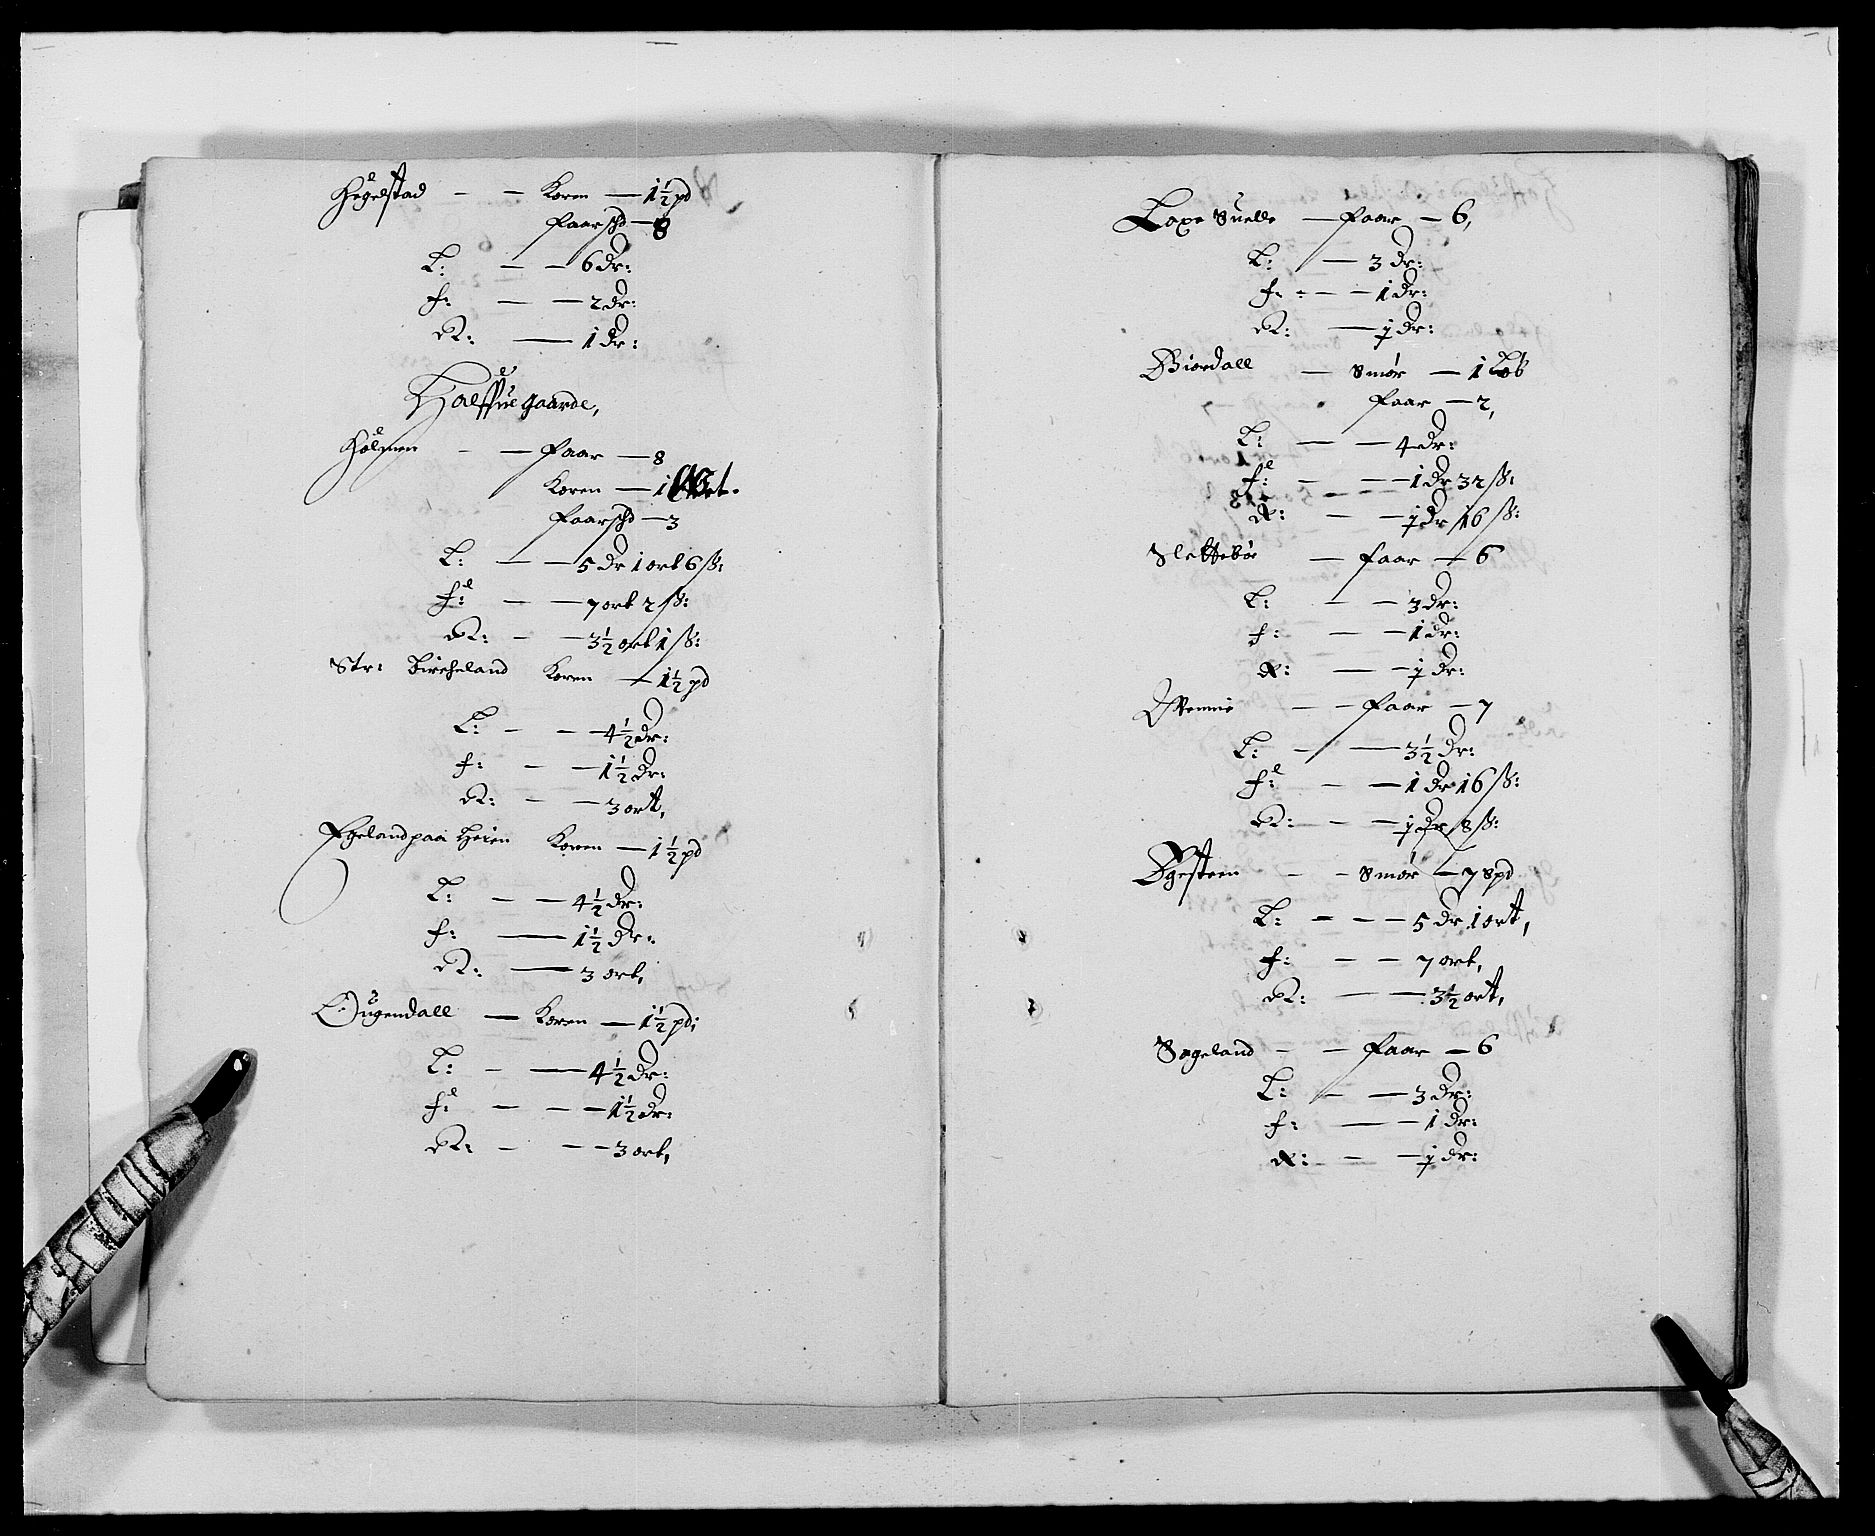 Hegelstad - - Koren - 1½ pd
Faarschd - 8
L: - - 6 dr:
f: - - 2 dr:
R: - 1 dr:
Halffue gaarde,
Holmen - - Faar - 8
Koren - 1
Faarschd - 3
L: - - 5 dr 1 ort 6 ß:
f: - - 7 ort 2 ß:
R: - - 3½ ort 1 ß:
Str: Bircheland Koren - 1½ pd
L: - - 4½ dr:
f: - - 1½ dr:
R: - - 3 ort,
Egeland paa Heien Koren - 1½ pd
L: - - 4½ dr:
f: - 1½ dr:
R: - 3 ort,
Ougendall - Koren - 1½ pd;
L: - - 4½ dr:
f: - - - 1½ dr:
R: - - - 3 ort,
Laxe Suelle - Faar - 6,
L: - 3 dr:
f: - - - 1 dr:
R: - ½ dr:
Biordall - Smør - 1 Løb
Faar - 2,
L: - - 4 dr:
f: - - 1 dr 32 ß:
R: - - ½ dr 16 ß:
Slettebøe - Faar - 6
L: - - 3 dr:
f: - - 1 dr:
R: - - ½ dr:
- - Faar - 7
L: - - 3½ dr:
f: - - 1 dr 16 ß:
R: - - ½ dr 8 ß:
Øgesteen - - Smør - 7 Spd
L: - - - 5 dr 1 ort,
f: - - 7 ort,
R: - - 3½ ort,
Søgeland - - Faar - 6
L: - - 3 dr:
f: - - 1 dr:
R: - - ½ dr: